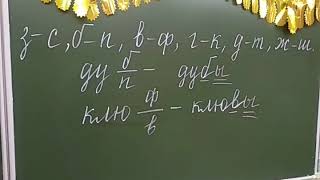 з-с, б-п, в-ф, г-к, д-т, ж-ш.
ду б/п - дубы
клю ф/в - клювы